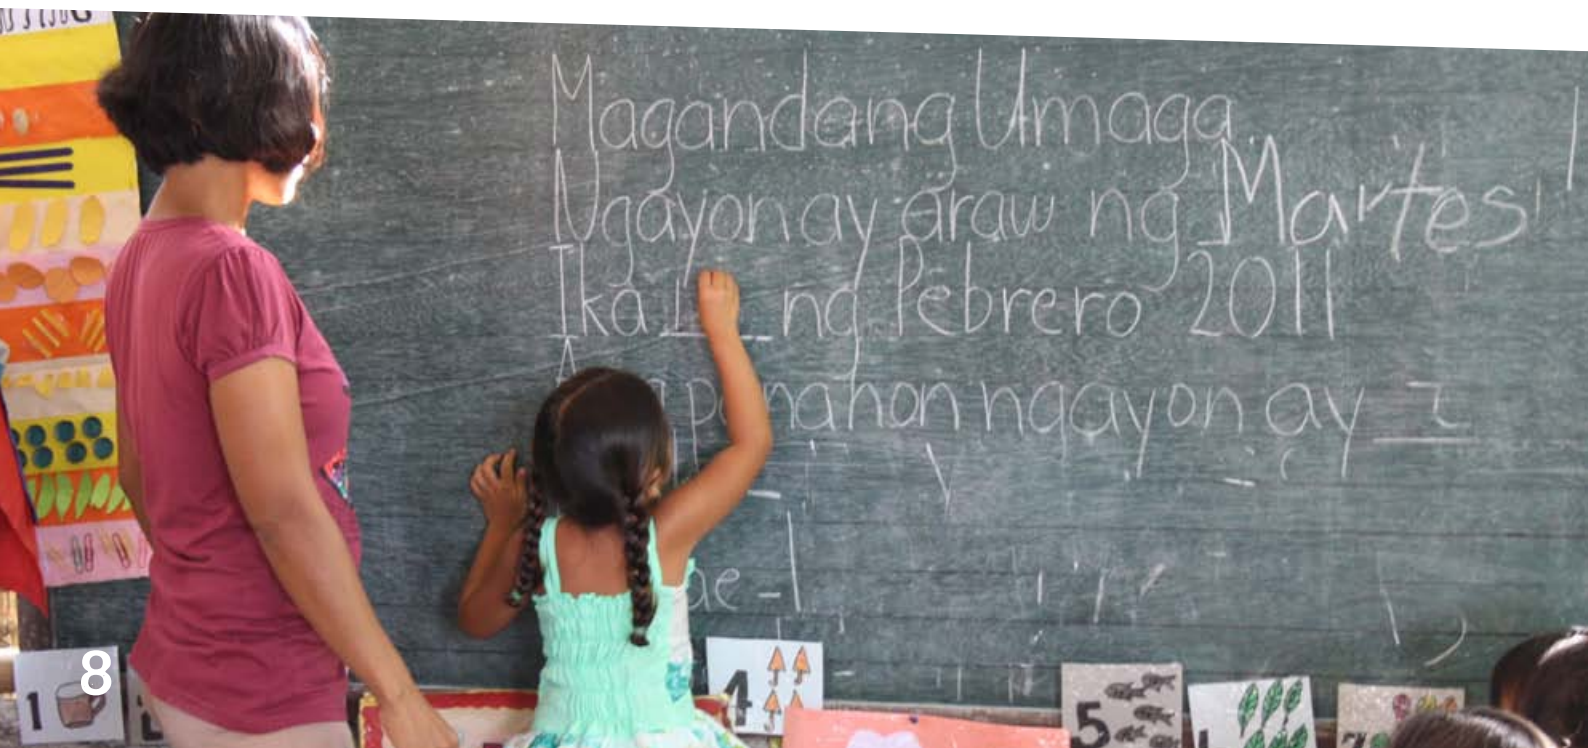 Magandang Umaga.
Ngayon ay araw ng Martes
Ika 1 ng Pebrero 2011
panahon ngayon ay
8
1
4
5